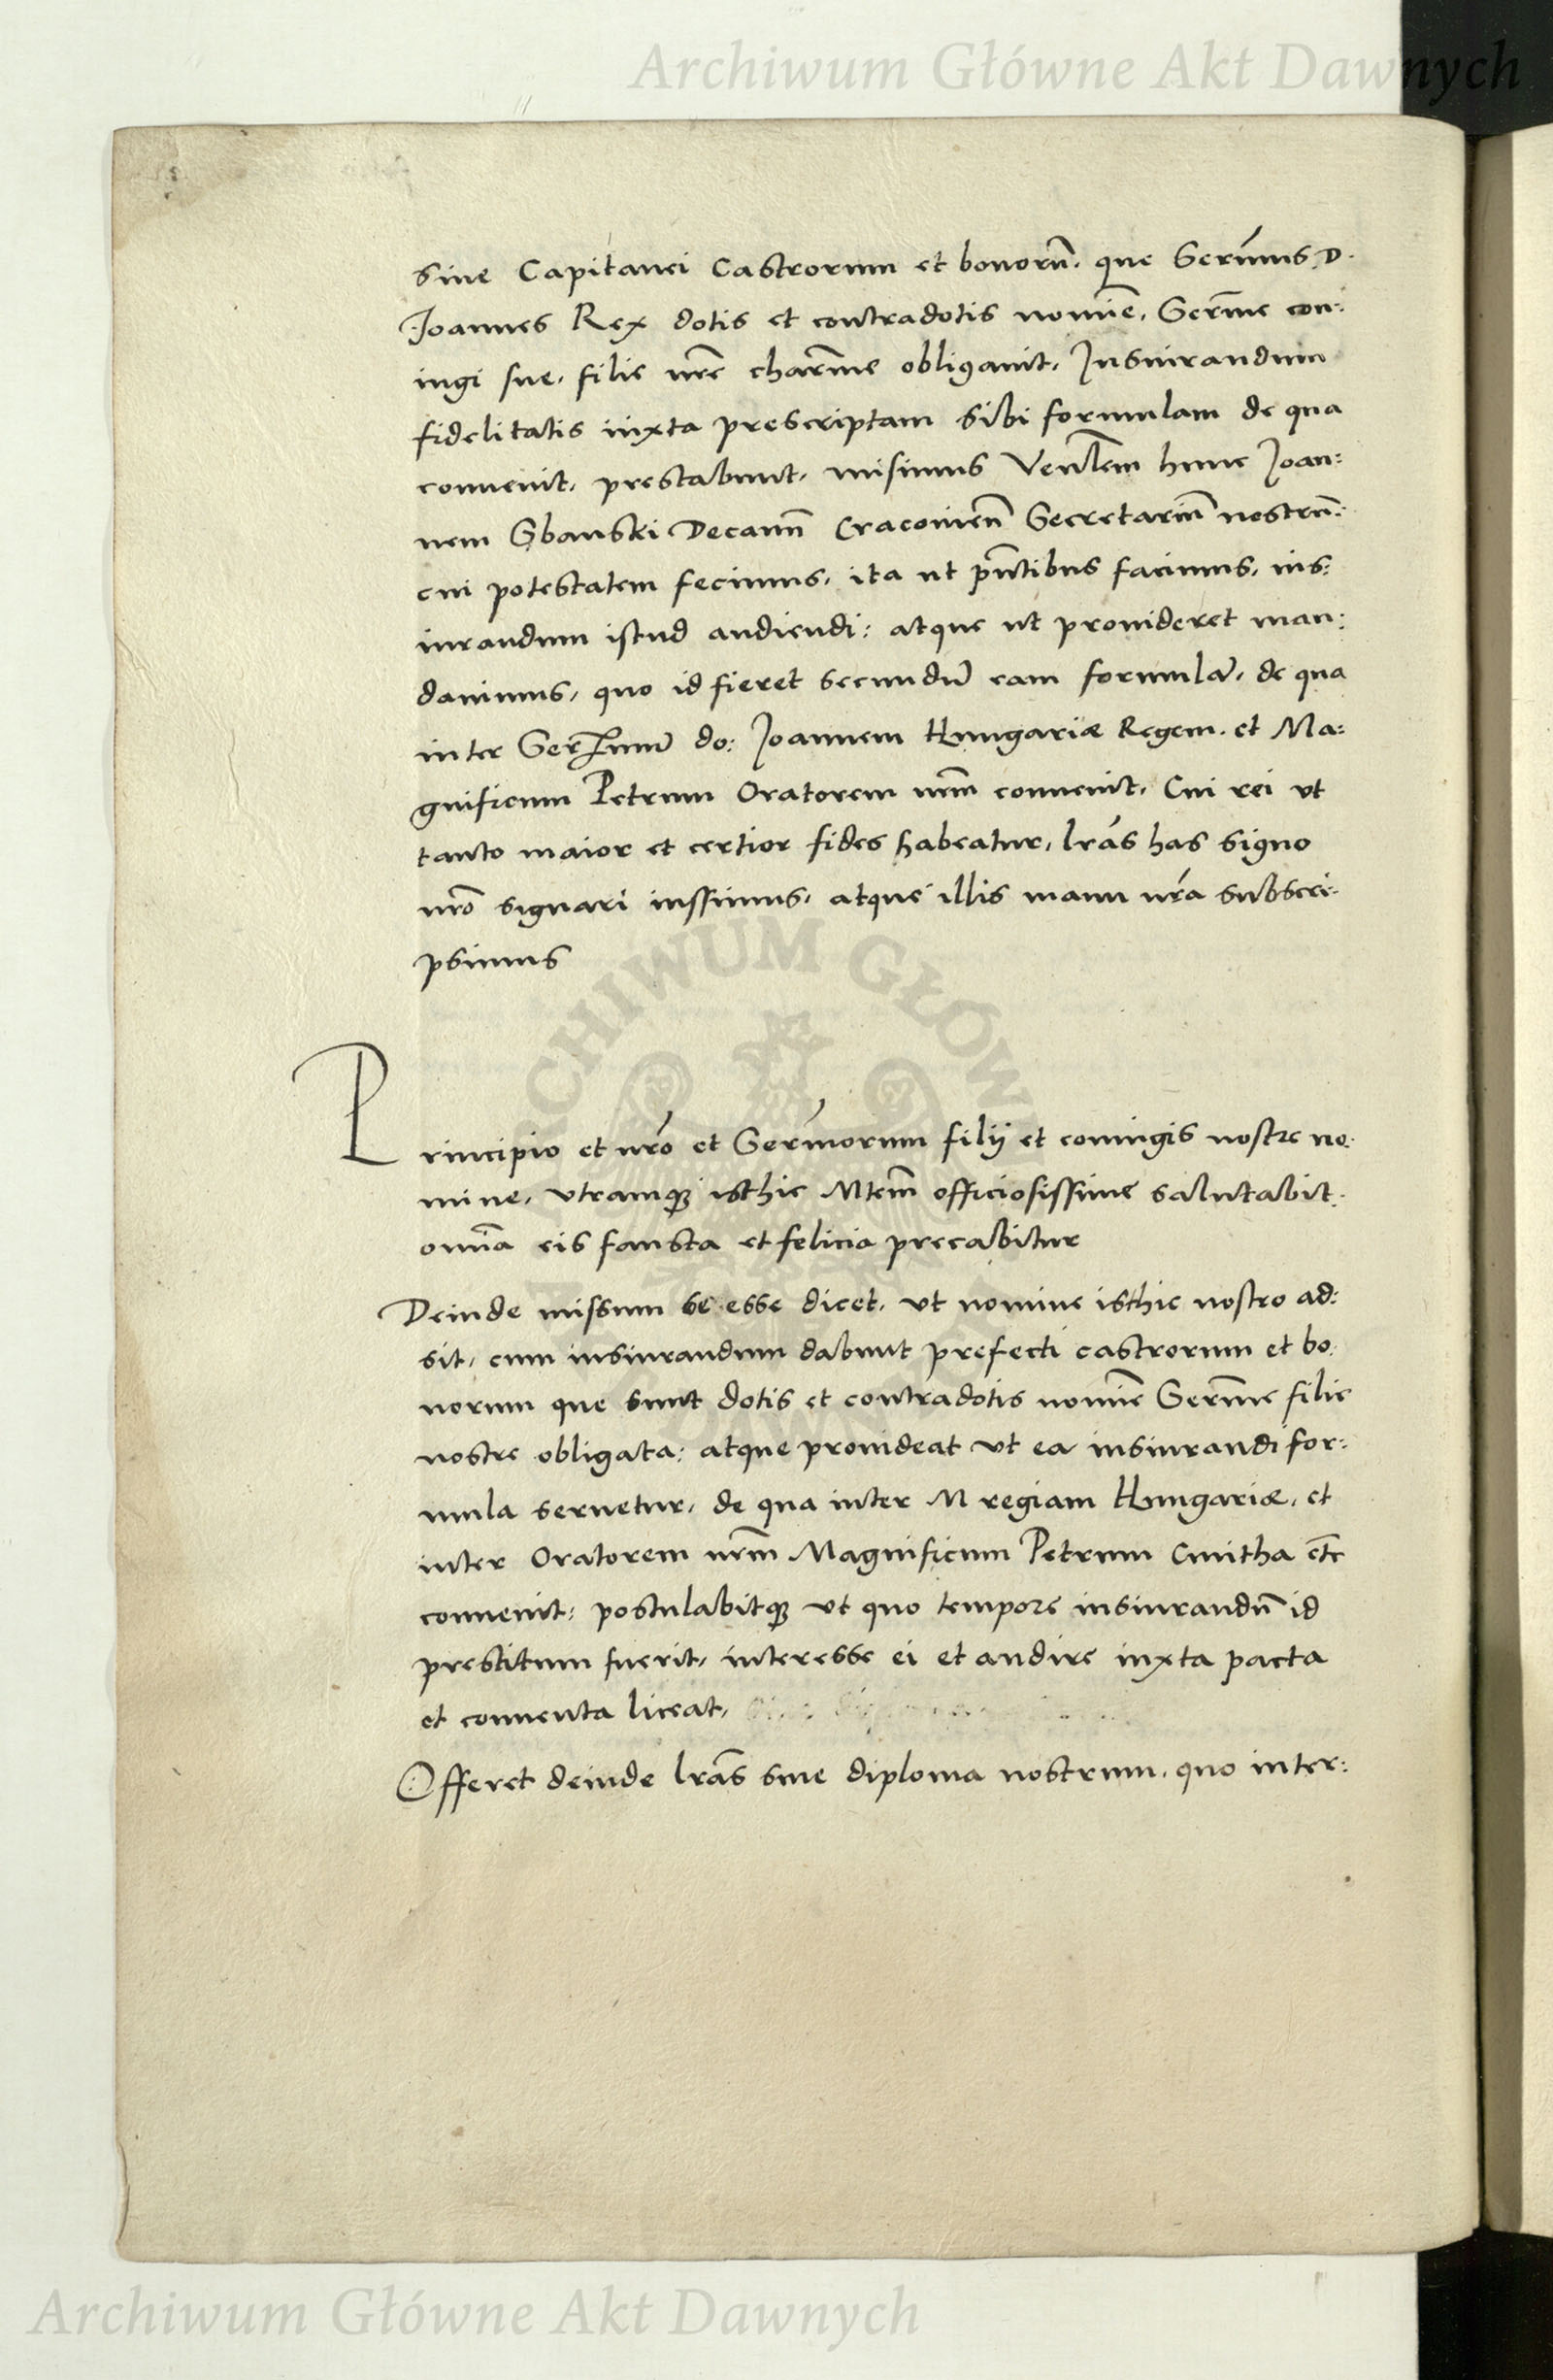 Archiwum Główne Akt Dawnych
siue Capitanei Castrorum et bonorū. que Serm̄us. D.
Joannes Rex dotis et contradotis nomīe, Serm̄e con:
iugi sue, filie nrē charm̄e obligauit, Jusiurandum
fidelitatis iuxta prescriptam sibi formulam de qua
conuenit, prestabunt, misimus Venlēm hunc Joan:
nem Sbanski Decanū Cracovieñ Secretariū nostrū:
cui potestatem fecimus, ita ut pn̄tibus facimus, ius:
iurandum istud audiendi: atque ut prouideret man:
dauimus, quo id fieret secundū eam formulā, de qua
inter Ser̄mum do: Joannem Hungariæ Regem. et Ma:
gnificum Petrum Oratorem nrm̄ conuenit, Cui rei vt
tanto maior et certior fides habeatur, lrás has signo
nrō signari iussimus, atque illis manu nrá subscri:
psimus
ARCHIWUM GŁÓWNE
Principio et nrō et Serm̄orum filij et coniugis nostre no:
mine, vtramqȝ isthic Mtem̄ officiosissime salutabit:
omnīa eis fausta et felicia precabitur
Deinde missum se esse dicet, vt nomine isthic nostro ad:
sit, cum iusiurandum dabunt prefecti castrorum et bo:
norum que sunt dotis et contradotis nomīe Serm̄e filie
nostre obligata: atque prouideat vt ea iusiurandi for:
mula seruetur, de qua inter M regiam Hungariæ, et
inter Oratorem nrm̄ Magnificum Petrum Cmitha etc̄
conuenit: postulabitqȝ vt quo tempore iusiurandū id
prestitum fuerit, interesse ei et audire iuxta pacta
et conuenta liceat,
Offeret deinde lrās siue diploma nostrum, quo inter:
Archiwum Główne Akt Dawnych